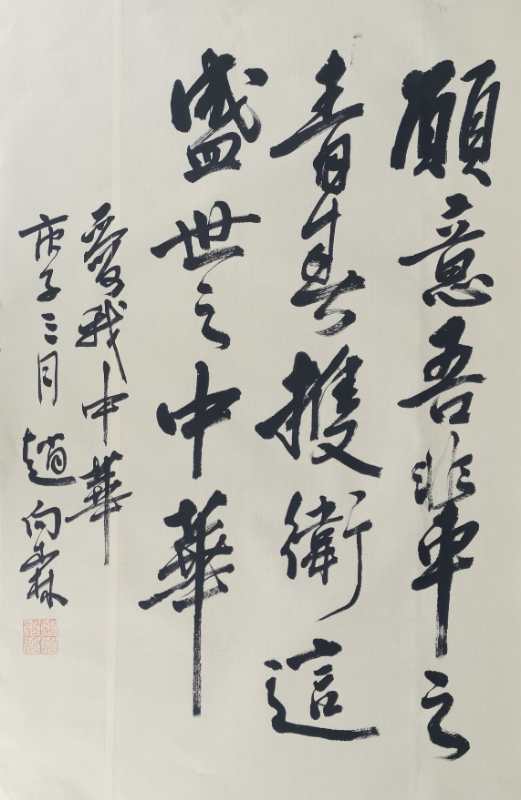 願意吾輩之
青春擭衛這
盛世之中華
愛我中華
庚子三月 趙向霖